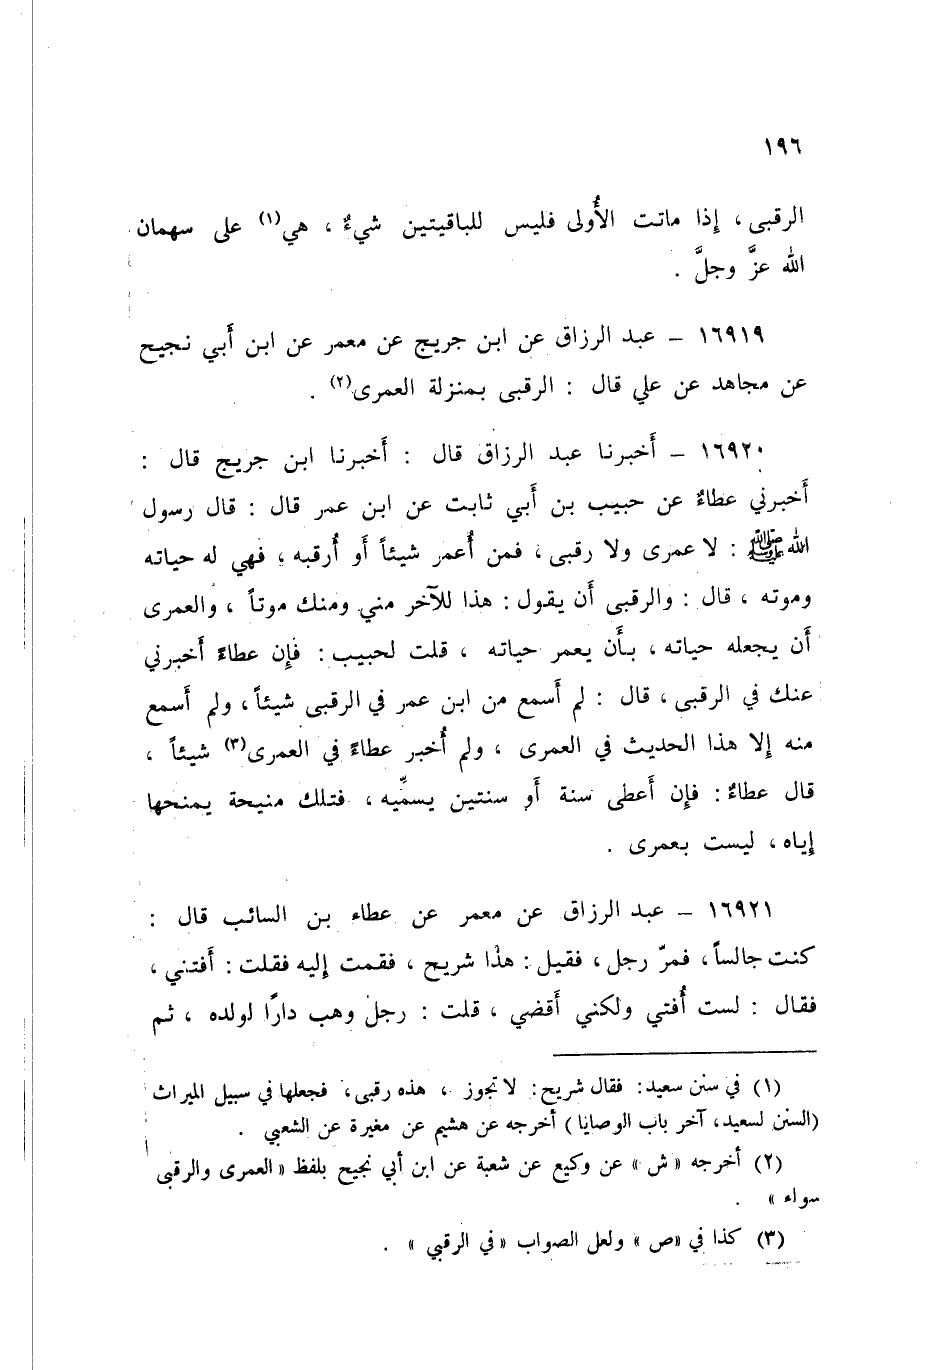 ١٩٦
الرقبى ، إذا ماتت الأُولى فليس للباقيتين شيءٌ ، هي(١) على سهمان
الله عزَّ وجلَّ .
١٦٩١٩ – عبد الرزاق عن ابن جريج عن معمر عن ابن أَبي نجيح
عن مجاهد عن علي قال : الرقبى بمنزلة العمرى(٢) .
١٦٩٢٠ – أَخبرنا عبد الرزاق قال : أَخبرنا ابن جريج قال :
أَخبرني عطاءٌ عن حبيب بن أَبي ثابت عن ابن عمر قال : قال رسول
الله ﷺ : لا عمرى ولا رقبى ، فمن أُعمر شيئاً أَو أُرقبه ، فهي له حياته
وموته ، قال : والرقبى أَن يقول : هذا للآخر مني ومنك موتاً ، والعمرى
أَن يجعله حياته ، بأَن يعمر حياته ، قلت لحبيب : فإِن عطاءً أَخبرني
عنك في الرقبى ، قال : لم أَسمع من ابن عمر في الرقبى شيئاً ، ولم أَسمع
منه إِلا هذا الحديث في العمرى ، ولم أُخبر عطاءً في العمرى(٣) شيئاً ،
قال عطاءٌ : فإِن أَعطى سنة أَو سنتين يسمِّيه ، فتلك منيحة يمنحها
إِياه ، ليست بعمرى .
١٦٩٢١ – عبد الرزاق عن معمر عن عطاء بن السائب قال :
كنت جالساً ، فمرّ رجل ، فقيل : هذا شريح ، فقمت إِليه فقلت : أَفتني ،
فقال : لست أُفتي ولكني أَقضي ، قلت : رجل وهب دارًا لولده ، ثم
(١) في سنن سعيد : فقال شريح : لا تجوز ، هذه رقبى ، فجعلها في سبيل الميراث
(السنن لسعيد ، آخر باب الوصايا) أخرجه عن هشيم عن مغيرة عن الشعبي .
(٢) أخرجه «ش» عن وكيع عن شعبة عن ابن أبي نجيح بلفظ «العمرى والرقبى
سواء» .
(٣) كذا في «ص» ولعل الصواب «في الرقبي» .